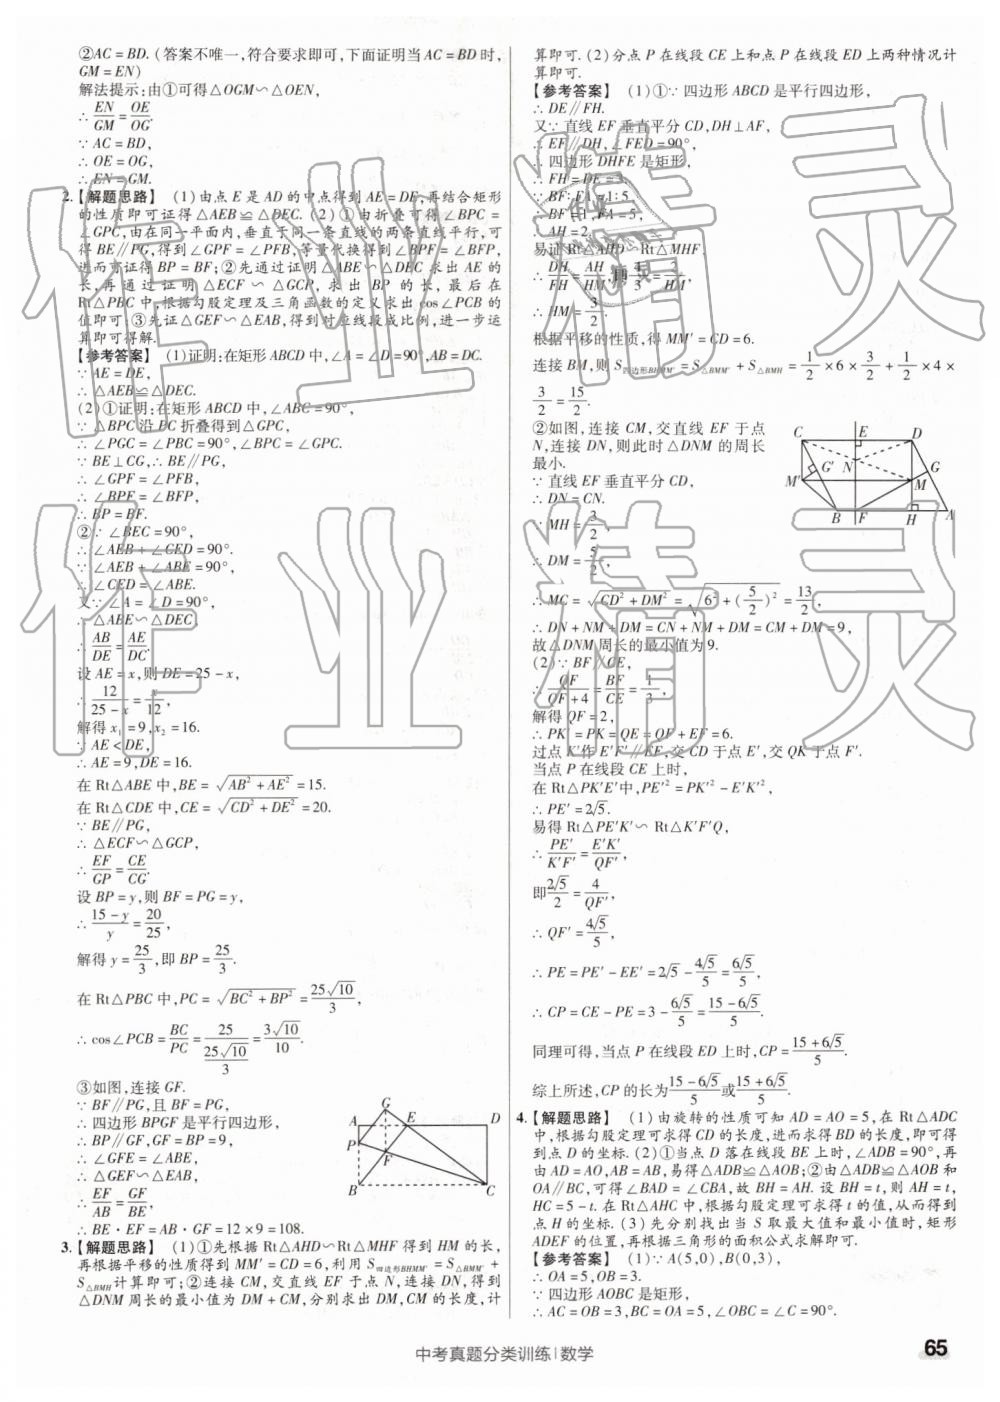 ②AC=BD.(答案不唯一,符合要求即可,下面证明当AC=BD时,
GM=EN)
解法提示:由①可得△OGM∽△OEN,
∴EN/GM=OE/OG.
∵AC=BD,
∴OE=OG,
∴EN=GM.
2.【解题思路】(1)由点E是AD的中点得到AE=DE,再结合矩形
的性质即可证得△AEB≌△DEC.(2)①由折叠可得∠BPC=
∠GPC,由在同一平面内,垂直于同一条直线的两条直线平行,可
得BE∥PG,得到∠GPF=∠PFB,等量代换得到∠BPF=∠BFP,
进而可证得BP=BF;②先通过证明△ABE∽△DEC求出AE的
长,再通过证明△ECF∽△GCP,求出BP的长,最后在
Rt△PBC中,根据勾股定理及三角函数的定义求出cos∠PCB的
值即可;③先证△GEF∽△EAB,得到对应线段成比例,进一步运
算即可得解.
【参考答案】(1)证明:在矩形ABCD中,∠A=∠D=90°,AB=DC.
∵AE=DE,
∴△AEB≌△DEC.
(2)①证明:在矩形ABCD中,∠ABC=90°,
∵△BPC沿PC折叠得到△GPC,
∴∠PGC=∠PBC=90°,∠BPC=∠GPC.
∵BE⊥CG,∴BE∥PG,
∴∠GPF=∠PFB,
∴∠BPF=∠BFP,
∴BP=BF.
②∵∠BEC=90°,
∴∠AEB+∠CED=90°.
∵∠AEB+∠ABE=90°,
∴∠CED=∠ABE.
又∵∠A=∠D=90°,
∴△ABE∽△DEC,
∴AB/DE=AE/DC.
设AE=x,则DE=25-x,
∴12/(25-x)=x/12,
解得x₁=9,x₂=16.
∵AE<DE,
∴AE=9,DE=16.
在Rt△ABE中,BE=√(AB²+AE²)=15.
在Rt△CDE中,CE=√(CD²+DE²)=20.
∵BE∥PG,
∴△ECF∽△GCP,
∴EF/GP=CE/CG.
设BP=y,则BF=PG=y,
∴(15-y)/y=20/25,
解得y=25/3,即BP=25/3.
在Rt△PBC中,PC=√(BC²+BP²)=25√10/3,
∴cos∠PCB=BC/PC=25/(25√10/3)=3√10/10.
③如图,连接GF.
∵BF∥PG,且BF=PG,
∴四边形BPGF是平行四边形,
∴BP∥GF,GF=BP=9,
∴∠GFE=∠ABE,
∴△GEF∽△EAB,
∴EF/AB=GF/BE,
∴BE·EF=AB·GF=12×9=108.
A G E D
P F
B C
3.【解题思路】(1)①先根据Rt△AHD∽Rt△MHF得到HM的长,
再根据平移的性质得到MM′=CD=6,利用S四边形BHMM′=S△BMM′+
S△BMH计算即可;②连接CM,交直线EF于点N,连接DN,得到
△DNM周长的最小值为DM+CM,分别求出DM,CM的长度,计
算即可.(2)分点P在线段CE上和点P在线段ED上两种情况计
算即可.
【参考答案】(1)①∵四边形ABCD是平行四边形,
∴DE∥FH.
又∵直线EF垂直平分CD,DH⊥AF,
∴EF∥DH,∠FED=90°,
∴四边形DHFE是矩形,
∴FH=DE=3.
∵BF:FA=1:5,
∴BF=1,FA=5,
∴AH=2.
易证Rt△AHD∽Rt△MHF,
∴DH/FH=AH/HM,即4/3=2/HM,
∴HM=3/2.
根据平移的性质,得MM′=CD=6.
连接BM,则S四边形BHMM′=S△BMM′+S△BMH=1/2×6×3/2+1/2×4×
3/2=15/2.
②如图,连接CM,交直线EF于点
N,连接DN,则此时△DNM的周长
最小.
∵直线EF垂直平分CD,
∴DN=CN.
∵MH=3/2,
∴DM=5/2,
∴MC=√(CD²+DM²)=√(6²+(5/2)²)=13/2,
∴DN+NM+DM=CN+NM+DM=CM+DM=9,
故△DNM周长的最小值为9.
C E D
N G′ G
M′ M
B F H A
(2)∵BF∥CE,
∴QF/(QF+4)=BF/CE=1/3,
解得QF=2,
∴PK′=PK=QE=QF+EF=6.
过点K′作E′F′∥EF,交CD于点E′,交QK于点F′.
当点P在线段CE上时,
在Rt△PK′E′中,PE′²=PK′²-E′K′²,
∴PE′=2√5.
易得Rt△PE′K′∽Rt△K′F′Q,
∴PE′/K′F′=E′K′/QF′,
即2√5/2=4/QF′,
∴QF′=4√5/5,
∴PE=PE′-EE′=2√5-4√5/5=6√5/5,
∴CP=CE-PE=3-6√5/5=(15-6√5)/5.
同理可得,当点P在线段ED上时,CP=(15+6√5)/5.
综上所述,CP的长为(15-6√5)/5或(15+6√5)/5.
4.【解题思路】(1)由旋转的性质可知AD=AO=5,在Rt△ADC
中,根据勾股定理可求得CD的长度,进而求得BD的长度,即可得
到点D的坐标.(2)①当点D落在线段BE上时,∠ADB=90°,再
由AD=AO,AB=AB,易得△ADB≌△AOB;②由△ADB≌△AOB和
OA∥BC,可得∠BAD=∠CBA,故BH=AH.设BH=t,则AH=t,
HC=5-t.在Rt△AHC中,根据勾股定理可求得t的值,从而得到
点H的坐标.(3)先分别找出当S取最大值和最小值时,矩形
ADEF的位置,再根据三角形的面积公式求解即可.
【参考答案】(1)∵A(5,0),B(0,3),
∴OA=5,OB=3.
∵四边形AOBC是矩形,
∴AC=OB=3,BC=OA=5,∠OBC=∠C=90°.
中考真题分类训练|数学
65
作业精灵
作业精灵